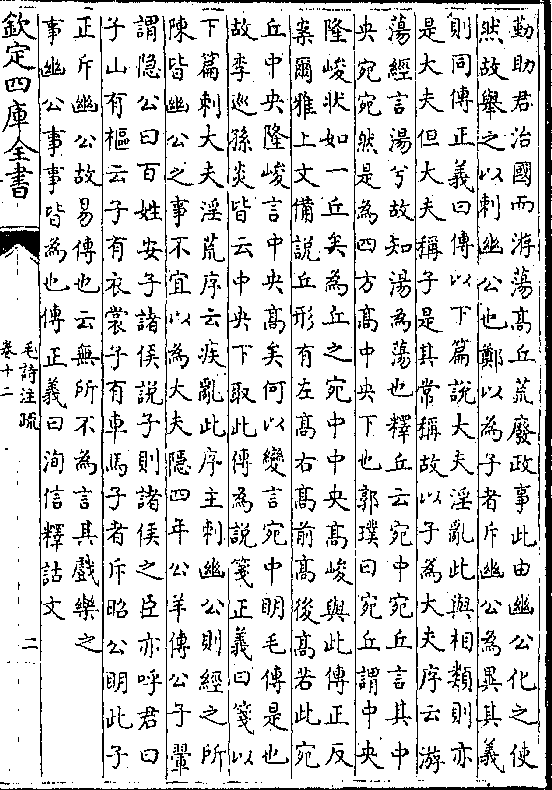 勤助君治國而游蕩髙丘荒廢政事此由幽公化之使
然故舉之以刺幽公也鄭以為子者斥幽公為異其義
則同傳正義曰傳以下篇說大夫淫亂此與相類則亦
是大夫但大夫稱子是其常稱故以子為大夫序云游
蕩經言湯兮故知湯為蕩也釋丘云宛中宛丘言其中
央宛宛然是為四方髙中央下也郭璞曰宛丘謂中央
隆峻狀如一丘矣為丘之宛中中央髙峻與此傳正反
案爾雅上文備說丘形有左髙右髙前髙後髙若此宛
丘中央隆峻言中央髙矣何以變言宛中明毛傳是也
故李巡孫炎皆云中央下取此傳為說箋正義曰箋以
下篇刺大夫淫荒序云疾亂此序主刺幽公則經之所
陳皆幽公之事不宜以為大夫隱四年公羊傳公子翬
謂隐公曰百姓安子諸侯說子則諸侯之臣亦呼君曰
子山有樞云子有衣裳子有車馬子者斥昭公明此子
正斥幽公故易傳也云無所不為言其戲樂之
事幽公事事皆為也傳正義曰洵信釋詁文
欽定四庫全書
毛詩注疏
卷十二
二